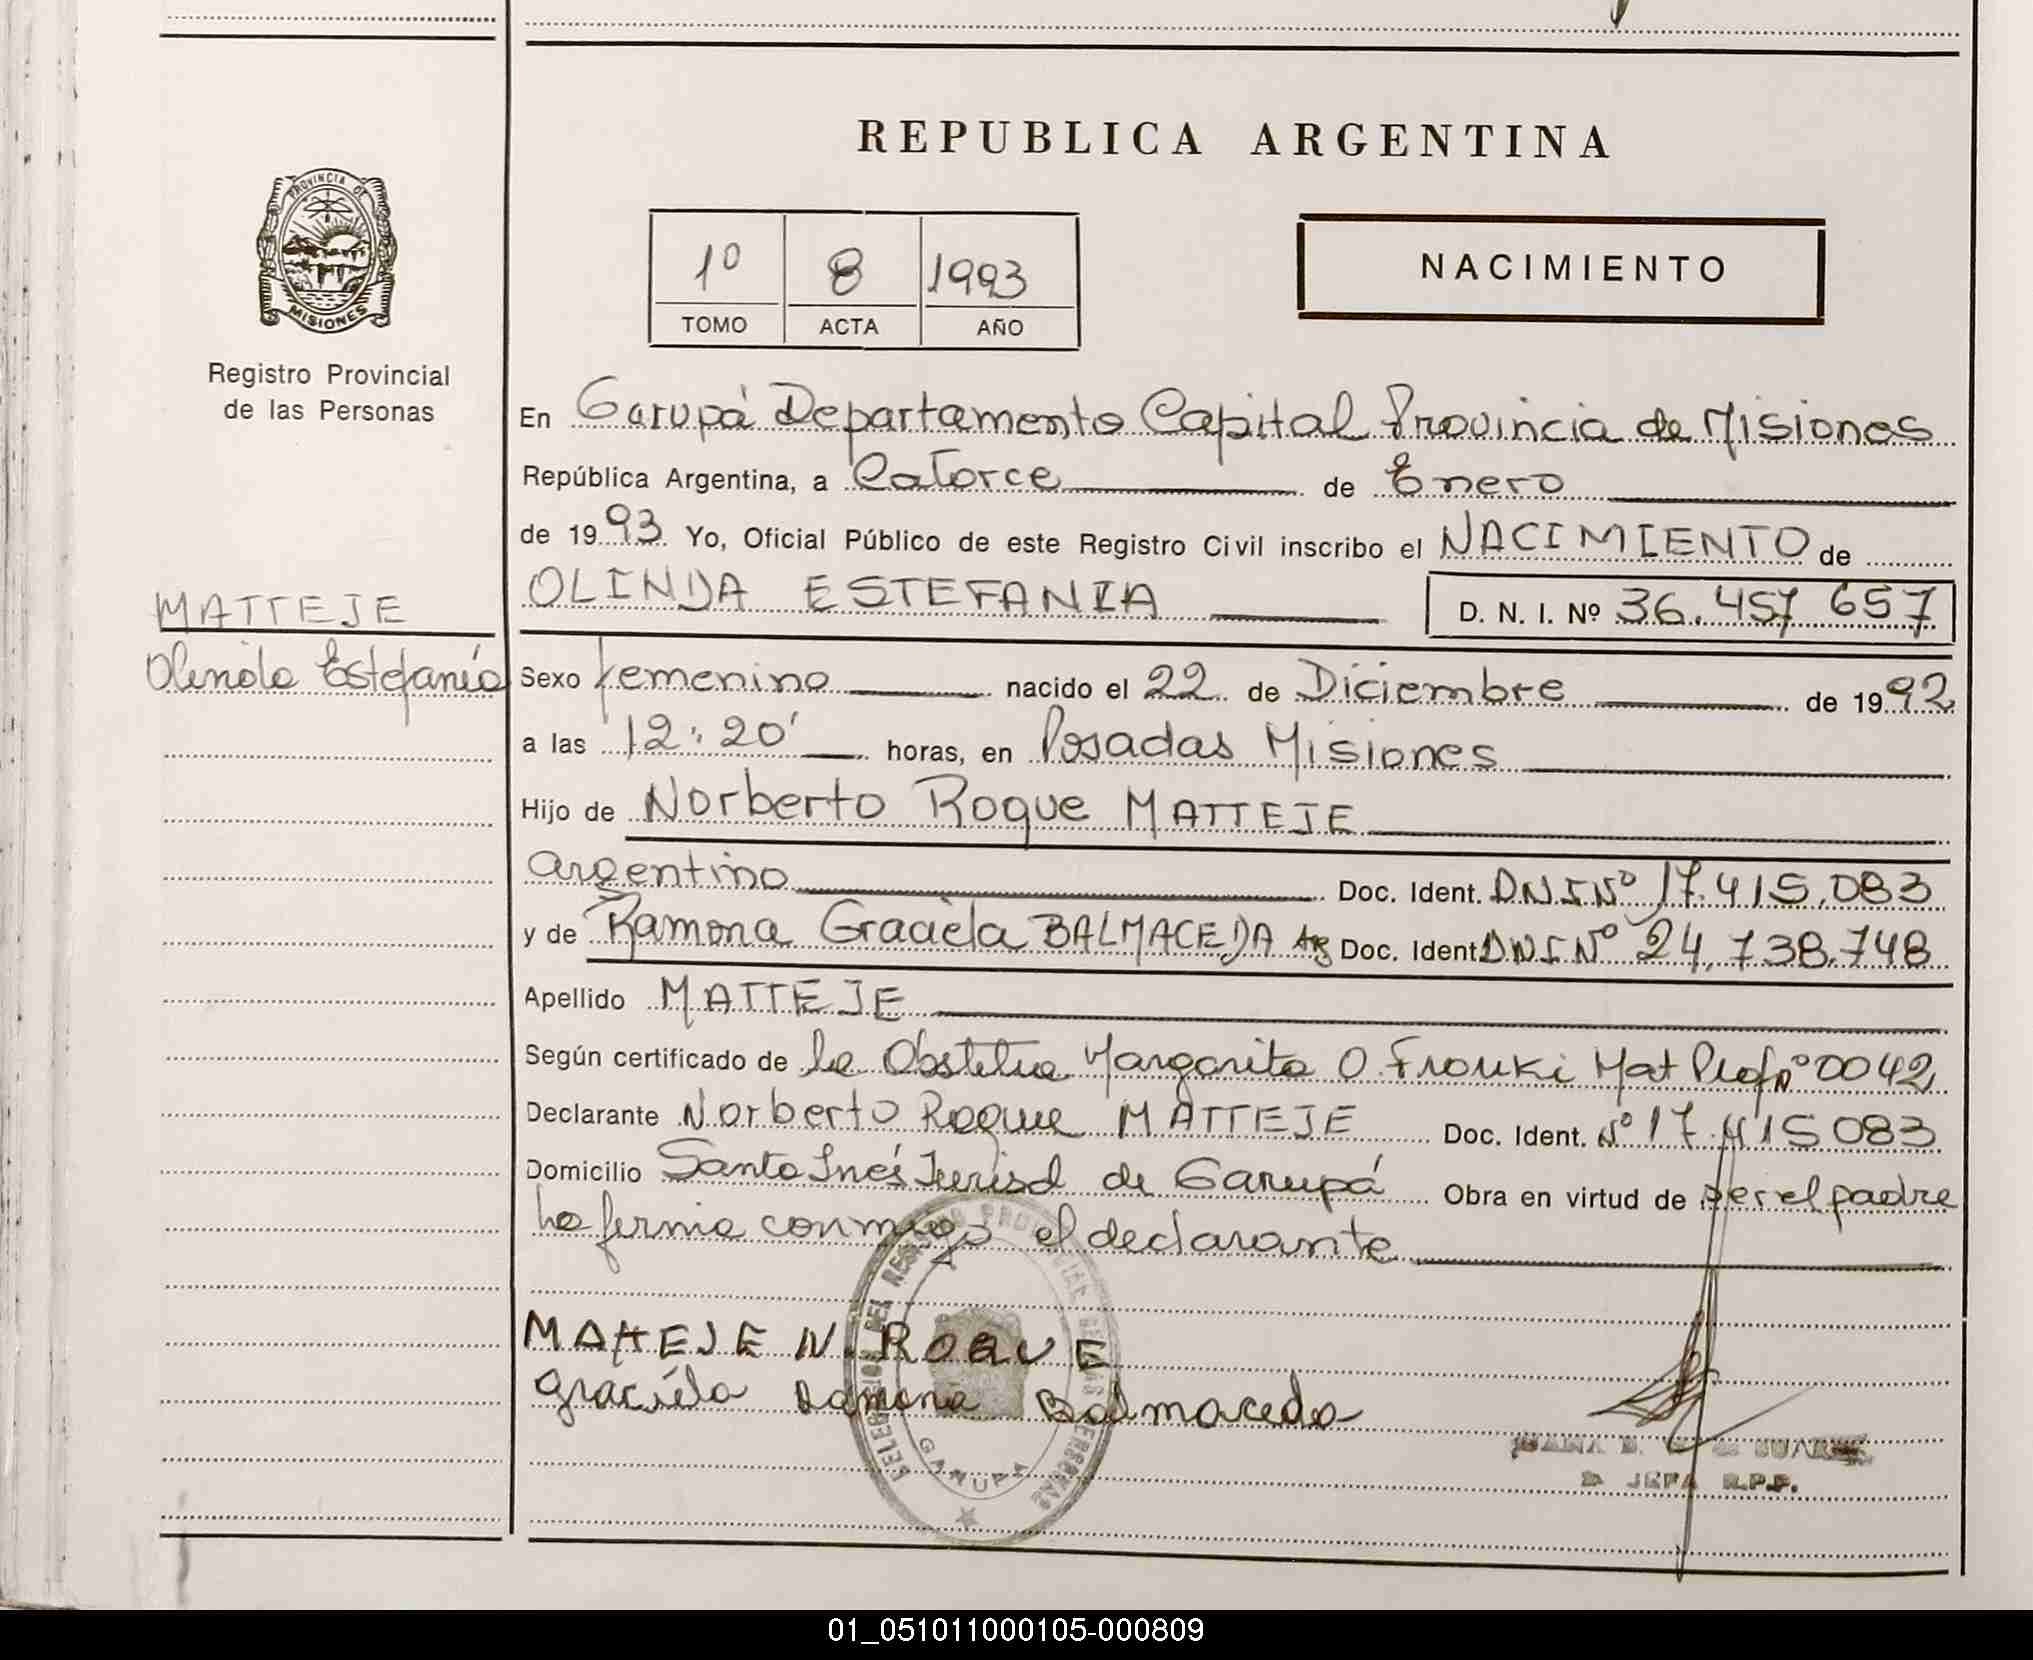 REPUBLICA ARGENTINA
PROVINCIA DE MISIONES
Registro Provincial
de las Personas
1º 8 1993
TOMO ACTA AÑO
NACIMIENTO
En Garupá Departamento Capital Provincia de Misiones
República Argentina, a Catorce de Enero
de 1993 Yo, Oficial Público de este Registro Civil inscribo el NACIMIENTO de
OLINDA ESTEFANIA D. N. I. Nº 36.457 657
MATTEJE
Olinda Estefanía
Sexo femenino nacido el 22 de Diciembre de 1992
a las 12:20' horas, en Posadas Misiones
Hijo de Norberto Roque MATTEJE
argentino Doc. Ident. DNI Nº 17.415.083
y de Ramona Graciela BALMACEDA Arg Doc. Ident DNI Nº 24.738.748
Apellido MATTEJE
Según certificado de la Obstetra Margarita O. Frouki Mat Prof Nº 0042
Declarante Norberto Roque MATTEJE Doc. Ident. Nº 17.415083
Domicilio Santa Inés Jurisd de Garupá Obra en virtud de ser el padre
La firma conmigo el declarante
MATTEJE N. ROQUE
Graciela Ramona Balmaceda
DELEGACION DEL REGISTRO PROVINCIAL DE LAS PERSONAS
GARUPA
SUAREZ
JEFA R.P.P.
01_051011000105-000809